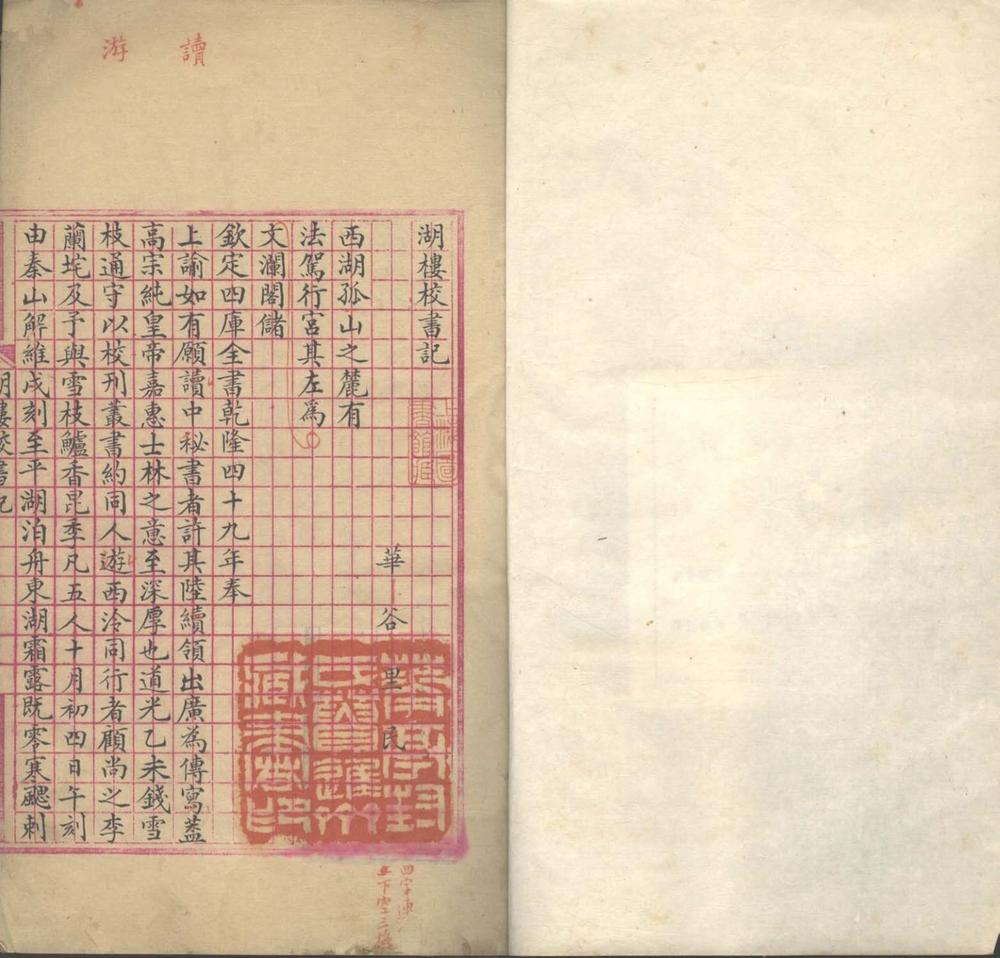 讀
游
湖樓校書記
華谷里民
西湖孤山之麓有
法駕行宮其左爲
文瀾閣儲
欽定四庫全書乾隆四十九年奉
上諭如有願讀中秘書者許其陸續領出廣為傳寫蓋
高宗純皇帝嘉惠士林之意至深厚也道光乙未錢雪
枝通守以校刊叢書約同人遊西泠同行者顧尚之李
蘭垞及予與雪枝鱸香昆季凡五人十月初四日午刻
由秦山解維戌刻至平湖泊舟東湖霜露既零寒颸刺
湖樓校書記
四字連
上下空三格